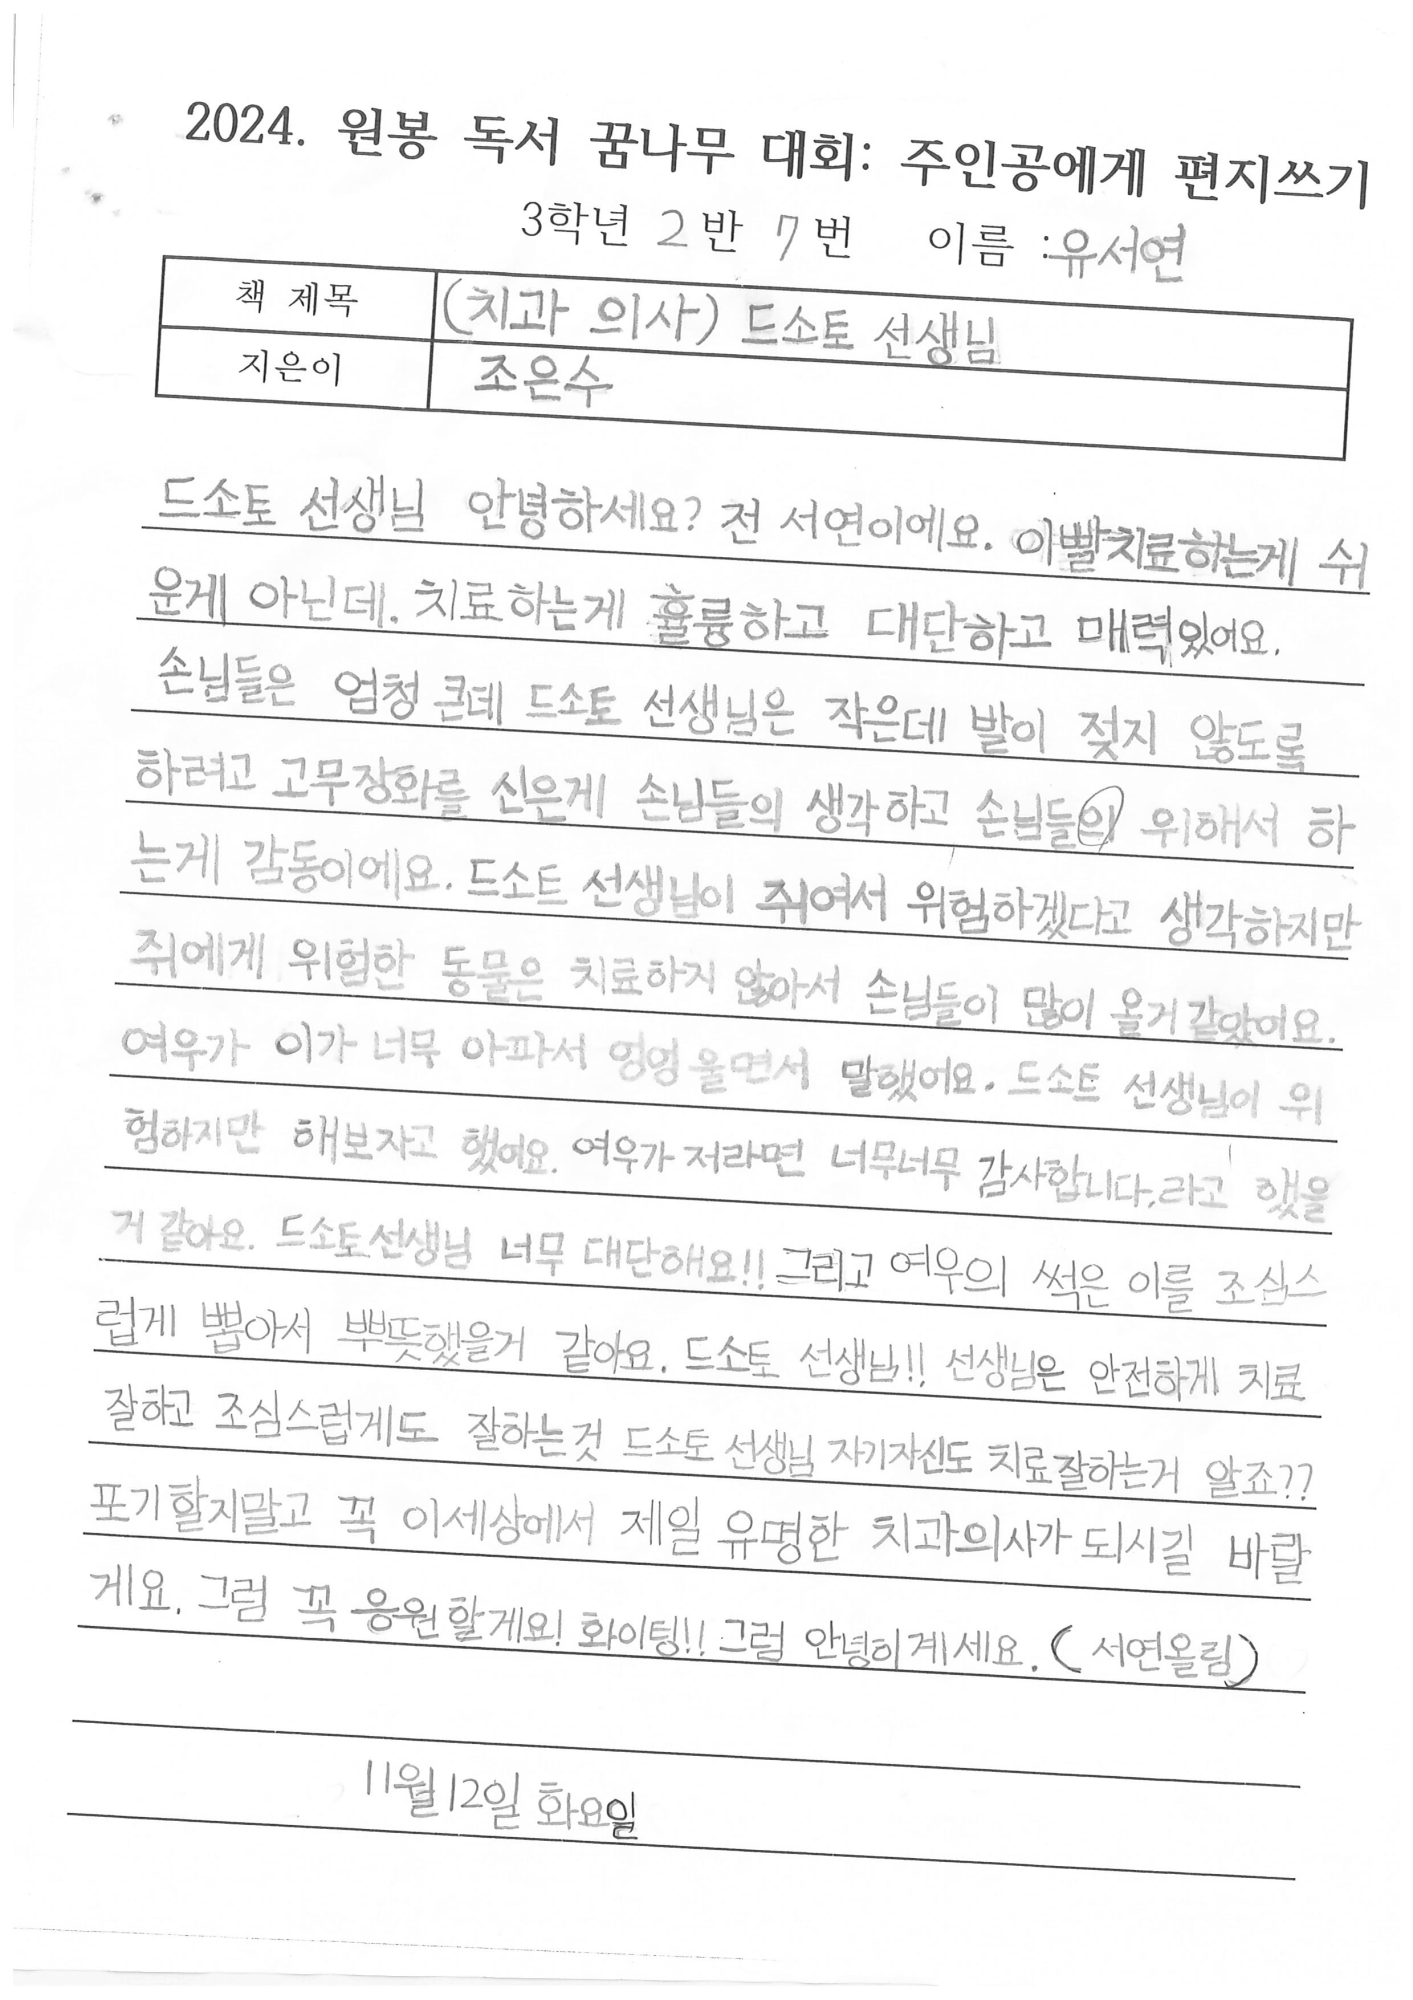 2024. 원봉 독서 꿈나무 대회: 주인공에게 편지쓰기
3학년 2 반 7 번 이름 :유서연
책 제목 (치과 의사) 드소토 선생님
지은이 조은수
드소토 선생님 안녕하세요? 전 서연이에요. 이빨치료하는게 쉬
운게 아닌데. 치료하는게 훌륭하고 대단하고 매력있어요.
손님들은 엄청 큰데 드소토 선생님은 작은데 발이 젖지 않도록
하려고 고무장화를 신은게 손님들의 생각하고 손님들의 위해서 하
는게 감동이에요. 드소트 선생님이 쥐여서 위험하겠다고 생각하지만
쥐에게 위험한 동물은 치료하지 않아서 손님들이 많이 올거 같았어요.
여우가 이가 너무 아파서 엉엉 울면서 말했어요. 드소트 선생님이 위
험하지만 해보자고 했어요. 여우가 저라면 너무너무 감사합니다.라고 했을
거 같아요. 드소토선생님 너무 대단해요!! 그리고 여우의 썩은 이를 조심스
럽게 뽑아서 뿌듯했을거 같아요. 드소토 선생님!! 선생님은 안전하게 치료
잘하고 조심스럽게도 잘하는것 드소토 선생님 자기자신도 치료잘하는거 알죠??
포기할지말고 꼭 이세상에서 제일 유명한 치과의사가 되시길 바랄
게요. 그럼 꼭 응원할게요! 화이팅!! 그럼 안녕히계세요. (서연올림)
11월12일 화요일